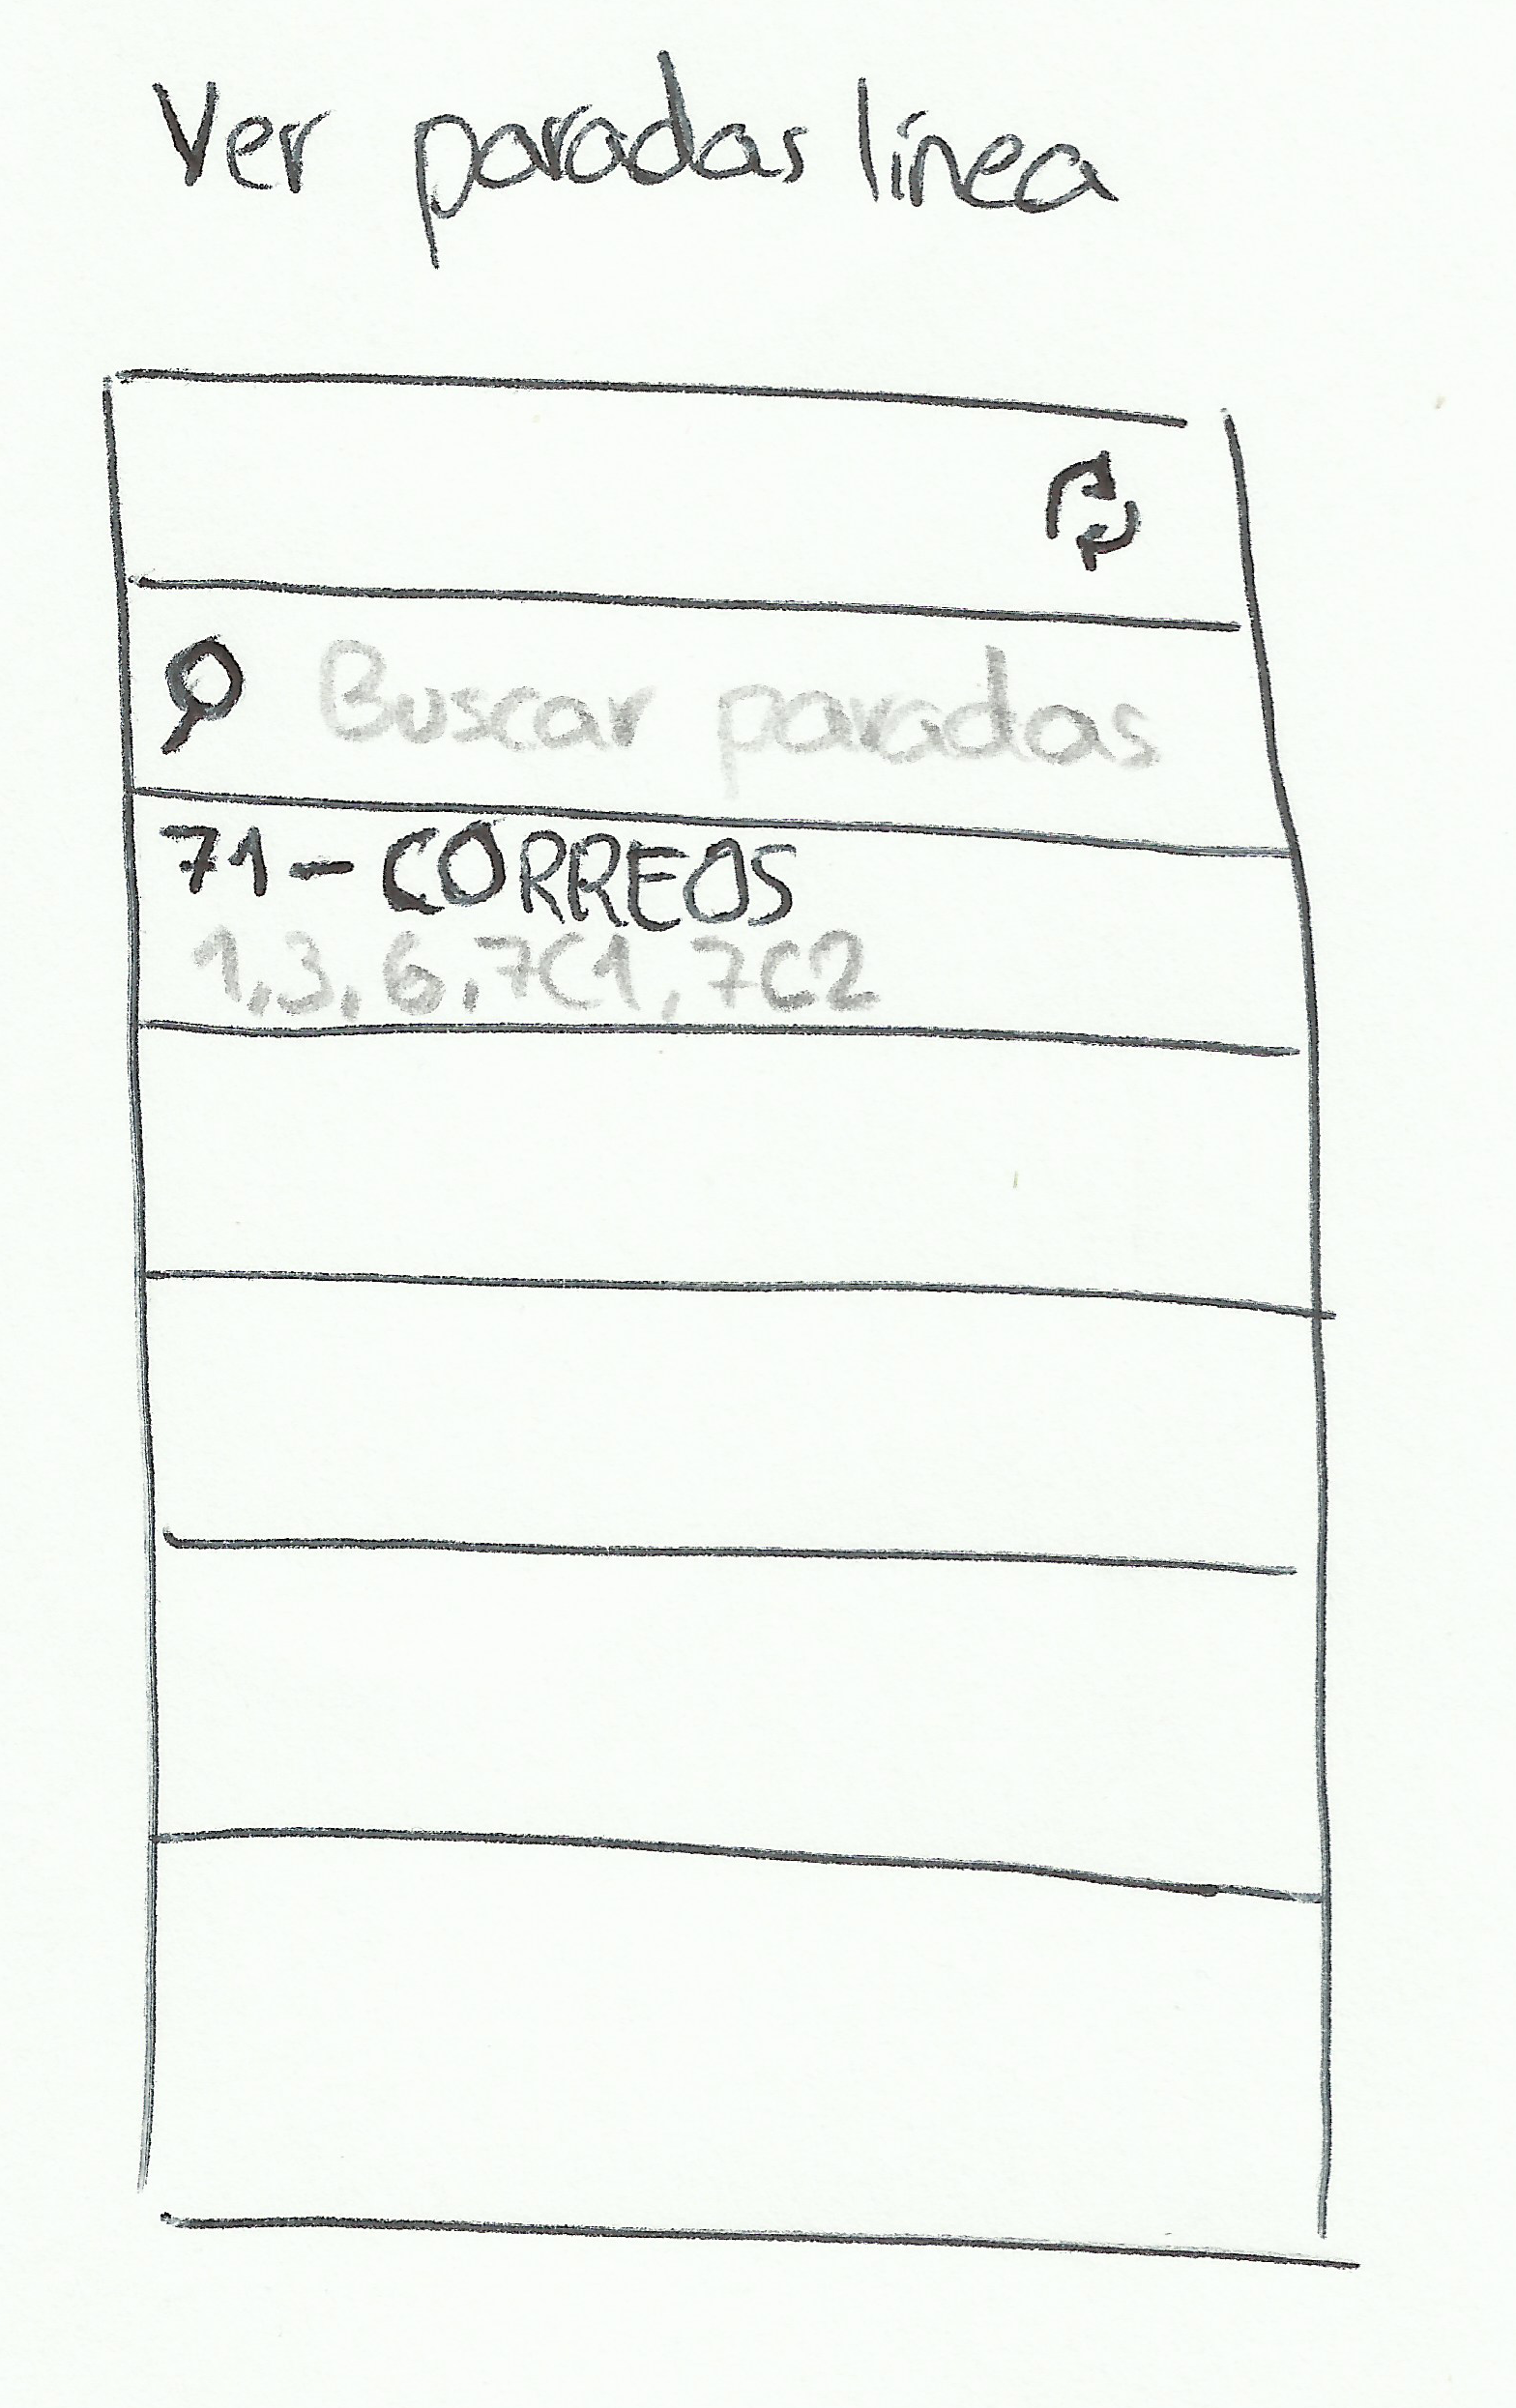 Ver paradas línea
Buscar paradas
71 - CORREOS
1, 3, 6, 7C1, 7C2